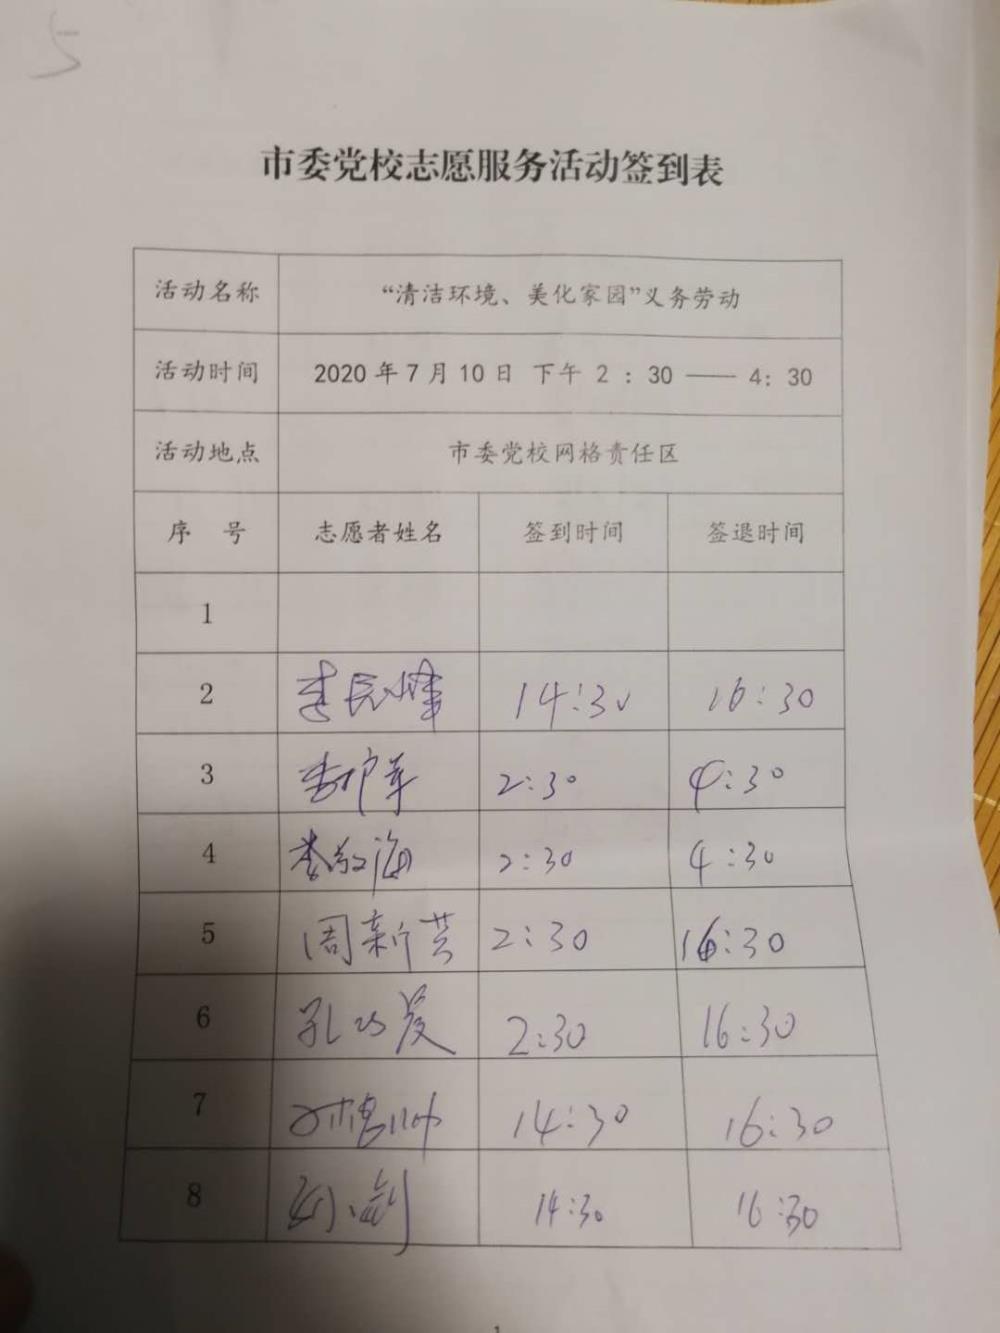 5
市委党校志愿服务活动签到表
活动名称 “清洁环境、美化家园”义务劳动
活动时间 2020年7月10日 下午 2 : 30 —— 4: 30
活动地点 市委党校网格责任区
序 号 志愿者姓名 签到时间 签退时间
1
2 李民峰 14:30 16:30
3 李护军 2:30 4:30
4 李敬海 2:30 4:30
5 周新芸 2:30 16:30
6 孔 2:30 16:30
7 14:30 16:30
8 14:30 16:30
1